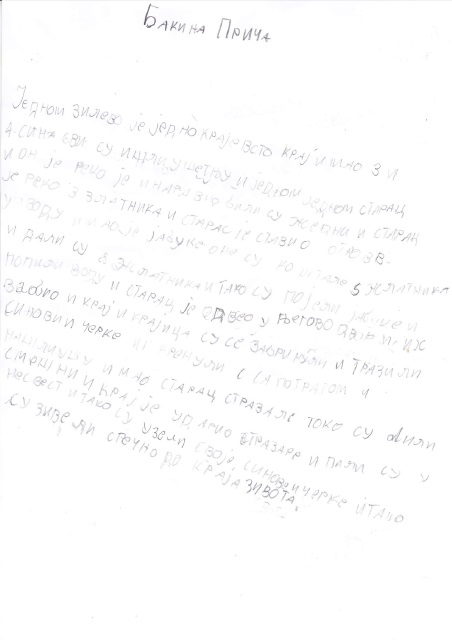 БАКИНА ПРИЧА
ЈЕДНОМ ЗИЛЕВО ЈЕ ЈЕДНО КРАЈЕВСТО КРАЈ ИМАО 3 И
4 СИНА СВИ СУ ИШЛИ У ШЕТЊУ И ЈЕДНОМ ЈЕДНОМ СТАРАЦ
И ОН ЈЕ РЕКО ЈЕ И НАРАЗНО БИЛИ СУ ЖЕДНИ И СТАРАЦ
ЈЕ РЕКО 3 ЗЛАТНИКА И СТАРАС ЈЕ СТАВИО
У ВОДУ И ИМАО ЈЕ ЈАБУКЕ ОНЕ СУ КОШТАЛЕ 5 ЖЛАТНИКА
И ДАЛИ СУ 8 ЖЛАТНИКА И ТАКО СУ ПОЈЕЛИ ЈАБУКЕ И
ПОПИЛИ ВОДУ И СТАРАЦ ЈЕ ОДВЕО У ЊЕГОВО ДВОРИШЦЕ
ЗАДОБРО И КРАЈ И КРАЈИЦА СУ СЕ ЗАБРИНУЛИ И ТРАЗИЛИ
СИНОВИ И ЧЕРКЕ КРЕНУЛИ С СА ПОТРАГОМ И
ИМАО СТАРАЦ СТРАЗАЛЕ ТОКО СУ БИЛИ
СМЕШНИ И КРАЈ ЈЕ УДАРИО СТРАЗАРЕ И ПАЛИ СУ У
НЕСВЕСТ И ТАКО СУ УЗЕЛИ СВОЈЕ СИНОВЕ И ЧЕРКЕ И ТАКО
СУ ЗИВЕЛИ СРЕЧНО ДО КРАЈА ЗИВОТА.